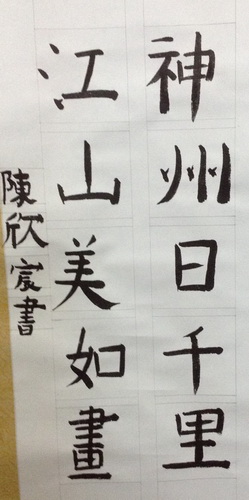 神州日千里
江山美如畫
陳欣宸書